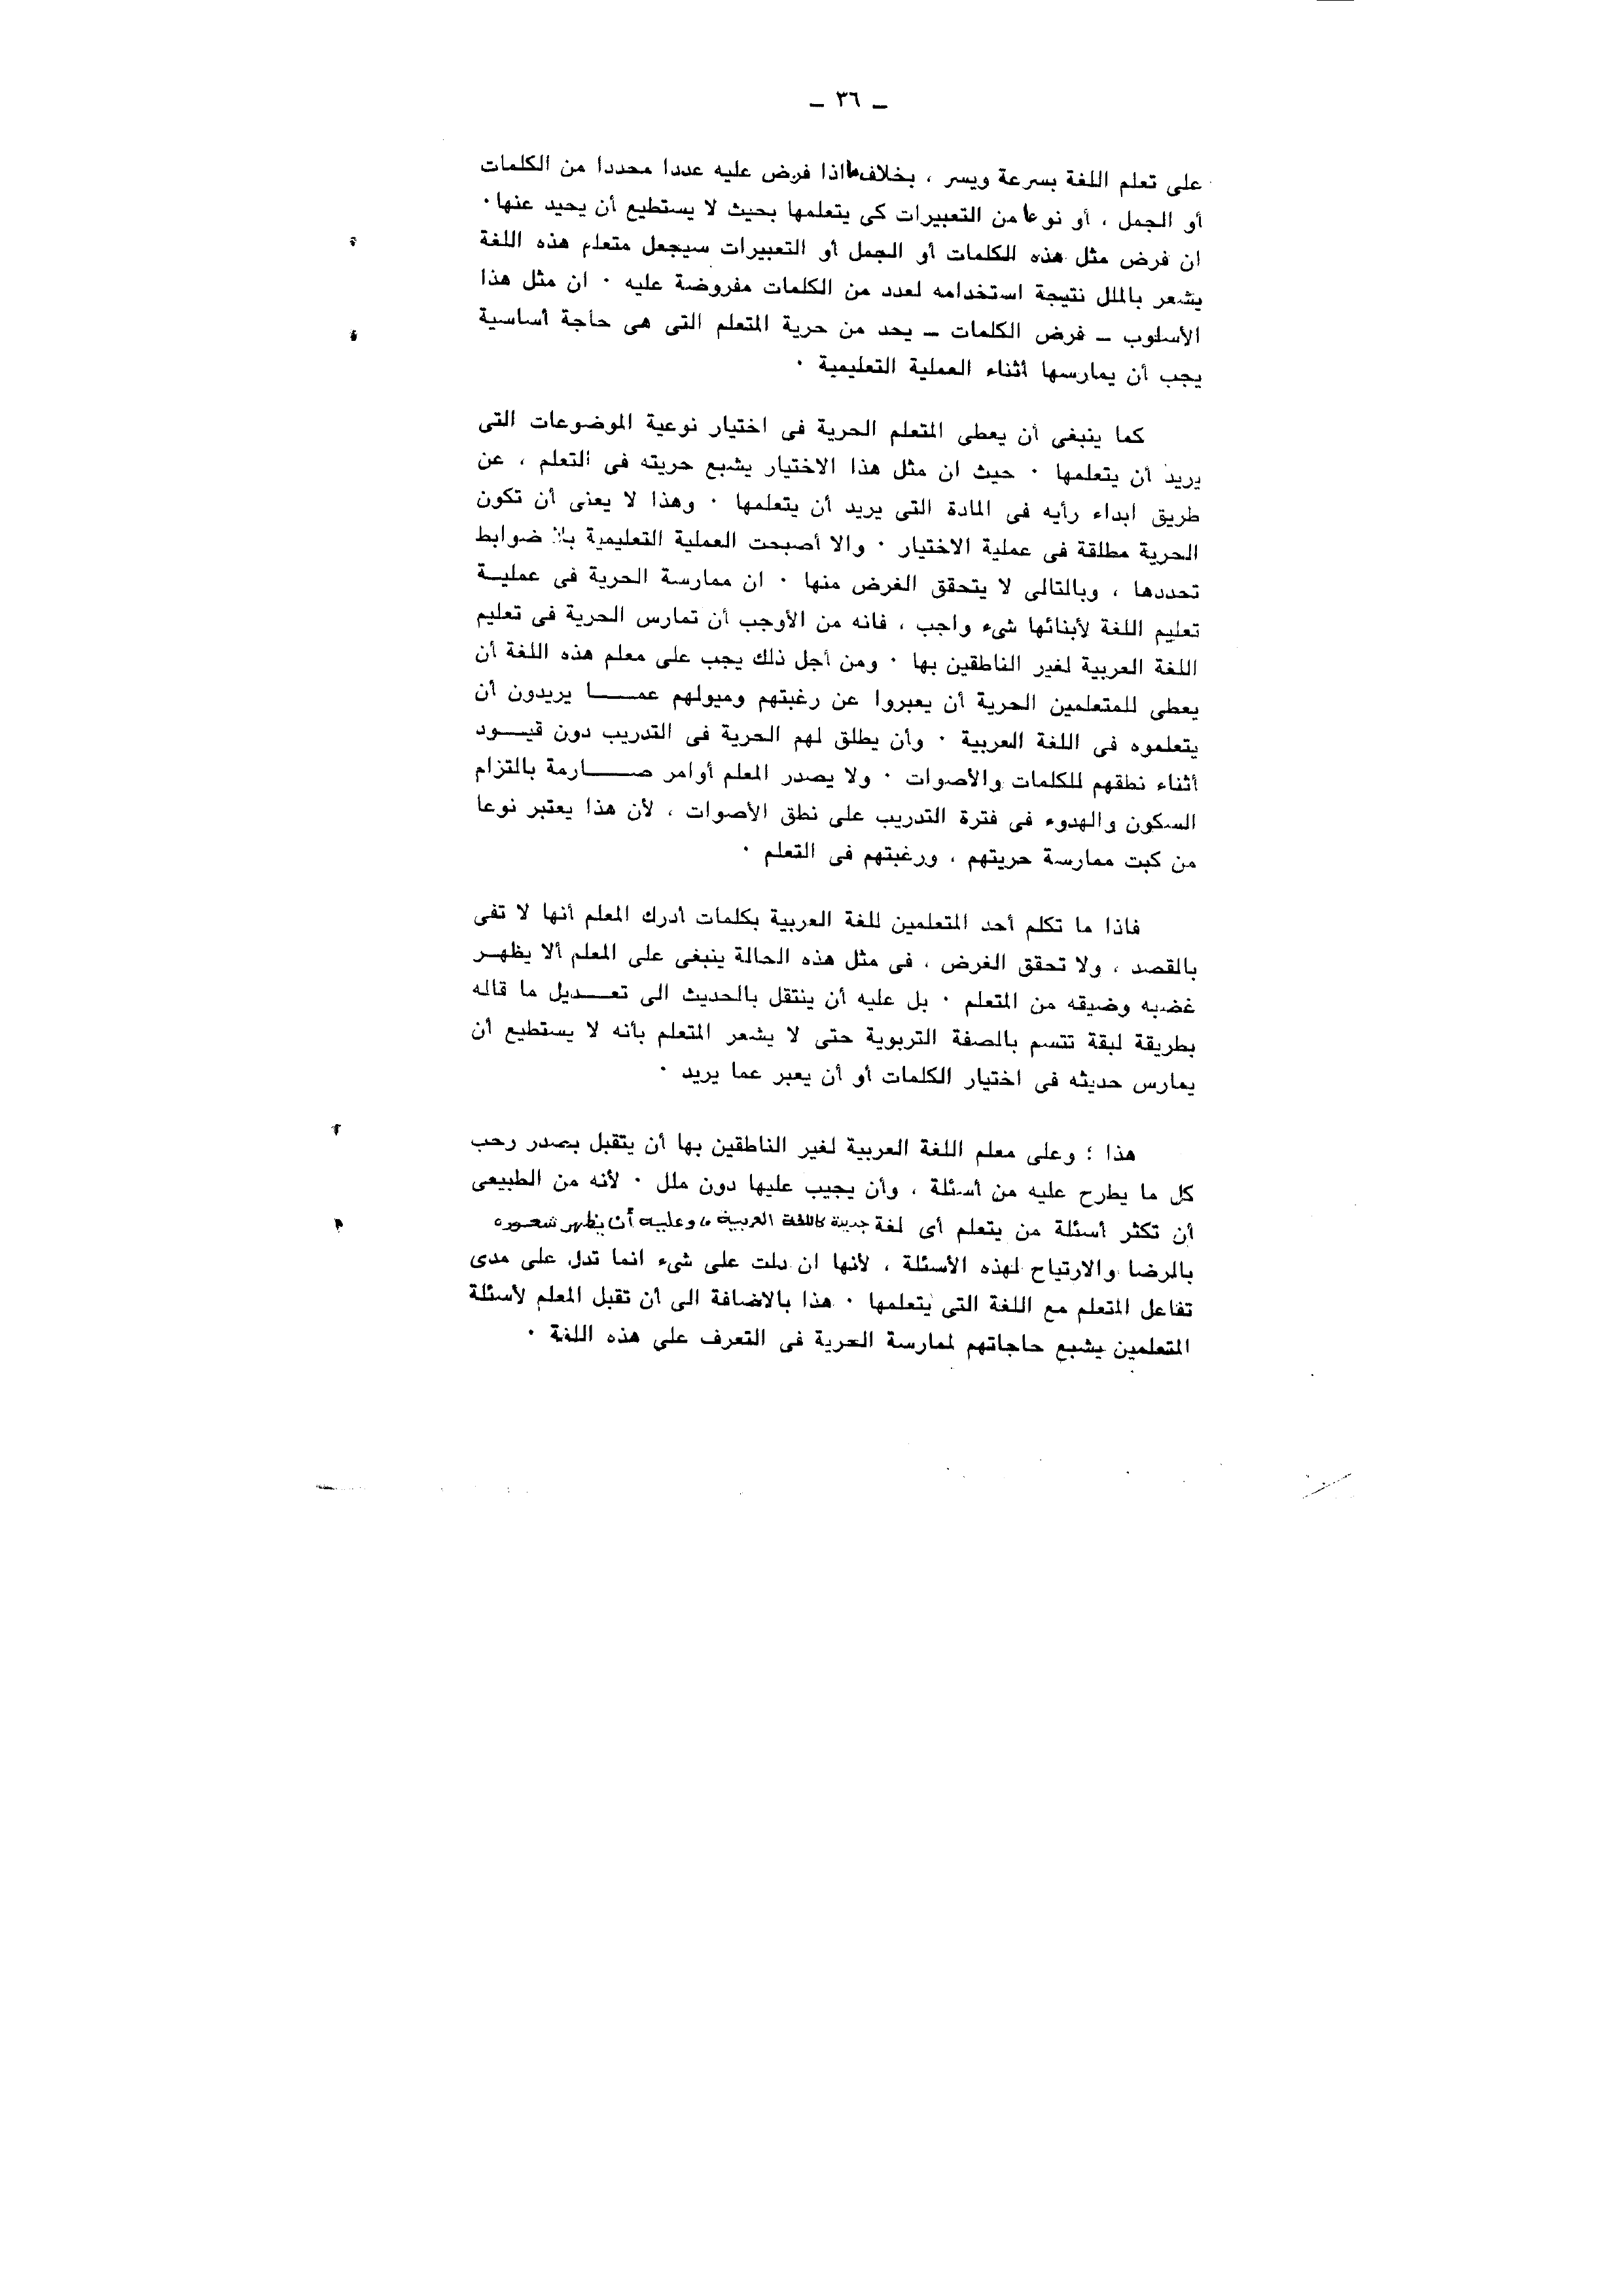 ـ ٣٦ ـ
على تعلم اللغة بسرعة ويسر ، بخلاف ما اذا فرض عليه عددا محددا من الكلمات
أو الجمل ، أو نوعا من التعبيرات كى يتعلمها بحيث لا يستطيع أن يحيد عنها ٠
ان فرض مثل هذه الكلمات أو الجمل أو التعبيرات سيجعل متعلم هذه اللغة
يشعر بالملل نتيجة استخدامه لعدد من الكلمات مفروضة عليه ٠ ان مثل هذا
الأسلوب ـ فرض الكلمات ـ يحد من حرية المتعلم التى هى حاجة أساسية
يجب أن يمارسها أثناء العملية التعليمية ٠
كما ينبغى أن يعطى المتعلم الحرية فى اختيار نوعية الموضوعات التى
يريد أن يتعلمها ٠ حيث ان مثل هذا الاختيار يشبع حريته فى التعلم ، عن
طريق ابداء رأيه فى المادة التى يريد أن يتعلمها ٠ وهذا لا يعنى أن تكون
الحرية مطلقة فى عملية الاختيار ٠ والا أصبحت العملية التعليمية بلا ضوابط
تحددها ، وبالتالى لا يتحقق الغرض منها ٠ ان ممارسة الحرية فى عمليـة
تعليم اللغة لأبنائها شىء واجب ، فانه من الأوجب أن تمارس الحرية فى تعليم
اللغة العربية لغير الناطقين بها ٠ ومن أجل ذلك يجب على معلم هذه اللغة أن
يعطى للمتعلمين الحرية أن يعبروا عن رغبتهم وميولهم عمــــا يريدون أن
يتعلموه فى اللغة العربية ٠ وأن يطلق لهم الحرية فى التدريب دون قيــود
أثناء نطقهم للكلمات والأصوات ٠ ولا يصدر المعلم أوامر صــــارمة بالتزام
السكون والهدوء فى فترة التدريب على نطق الأصوات ، لأن هذا يعتبر نوعا
من كبت ممارسة حريتهم ، ورغبتهم فى التعلم ٠
فاذا ما تكلم أحد المتعلمين للغة العربية بكلمات أدرك المعلم أنها لا تفى
بالقصد ، ولا تحقق الغرض ، فى مثل هذه الحالة ينبغى على المعلم ألا يظهـر
غضبه وضيقه من المتعلم ٠ بل عليه أن ينتقل بالحديث الى تعـــديل ما قاله
بطريقة لبقة تتسم بالصفة التربوية حتى لا يشعر المتعلم بأنه لا يستطيع أن
يمارس حديثه فى اختيار الكلمات أو أن يعبر عما يريد ٠
هذا ؛ وعلى معلم اللغة العربية لغير الناطقين بها أن يتقبل بصدر رحب
كل ما يطرح عليه من أسئلة ، وأن يجيب عليها دون ملل ٠ لأنه من الطبيعى
أن تكثر أسئلة من يتعلم أى لغة جديدة كاللغة العربية ، وعليه أن يظهر شعوره
بالرضا والارتياح لهذه الأسئلة ، لأنها ان دلت على شىء انما تدل على مدى
تفاعل المتعلم مع اللغة التى يتعلمها ٠ هذا بالاضافة الى أن تقبل المعلم لأسئلة
المتعلمين يشبع حاجاتهم لممارسة الحرية فى التعرف على هذه اللغة ٠